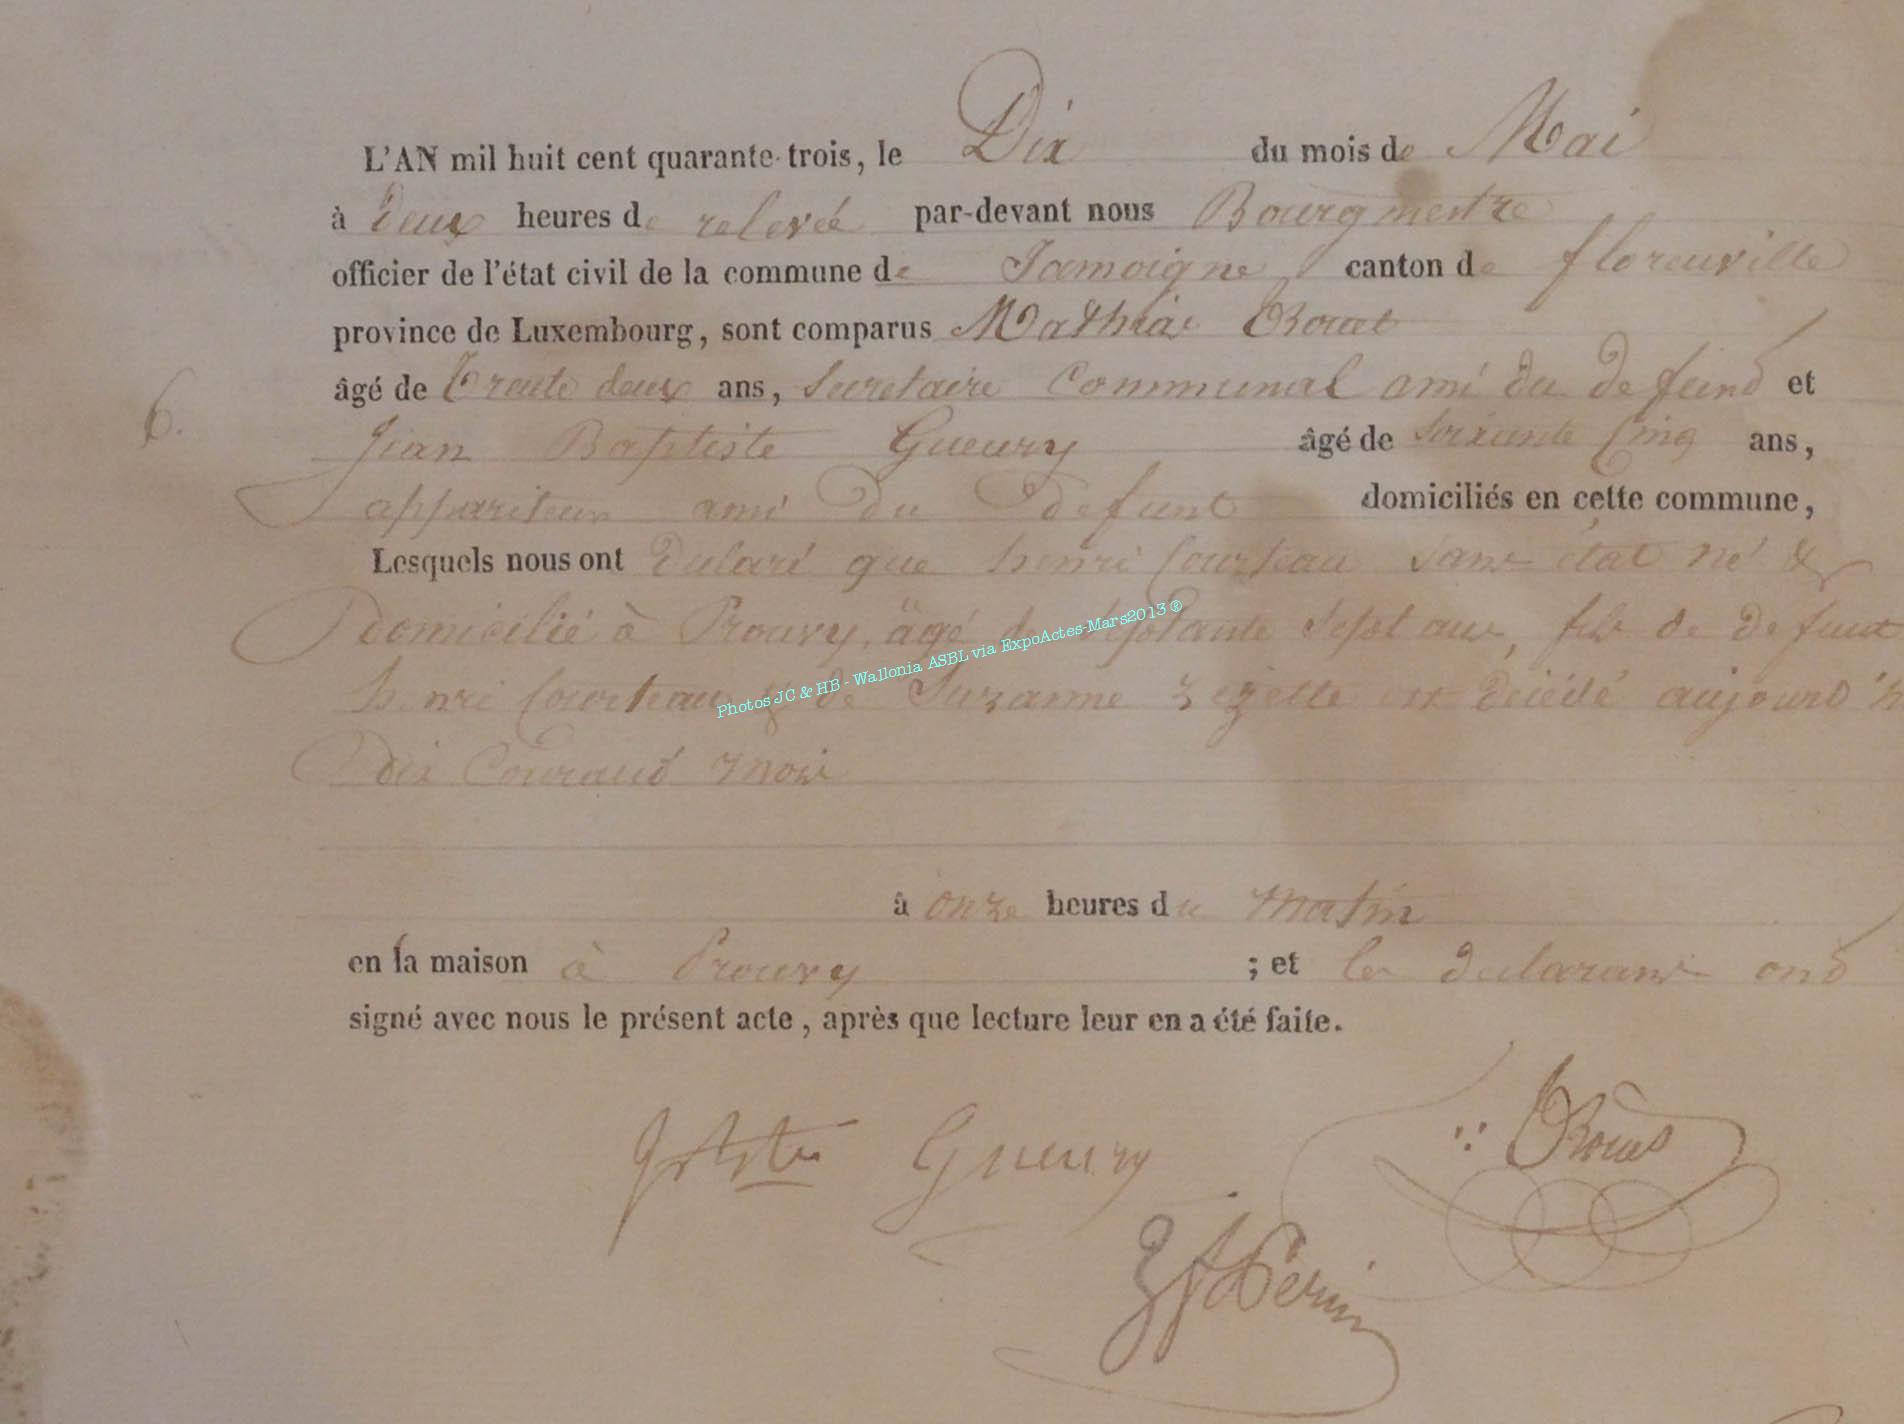 L'AN mil huit cent quarante-trois, le Dix du mois de Mai
à deux heures de relevée par-devant nous Bourgmestre
officier de l'état civil de la commune de Jamoigne canton de florenville
province de Luxembourg, sont comparus Mathias
âgé de Trente deux ans, Secretaire Communal ami du defund et
6.
Jean Baptiste Gueury âgé de soixante Cinq ans,
appariteur ami du defunt domiciliés en cette commune,
Lesquels nous ont declaré que henri Courteau sans état né &
Domicilié à Prouvy, âgé de septante sept ans, fils de defunt
henri Courteau & de Suzanne est décédé aujourd'h
Dix Courand mois
à onze heures du matin
en sa maison à Prouvy ; et les declarans ond
signé avec nous le présent acte, après que lecture leur en a été faite.
Gueury
Photos JC & HB - Wallonia ASBL via ExpoActes-Mars2013 ®